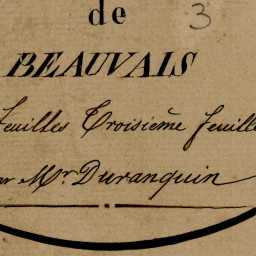 de
3
BEAUVAIS
feuilles Troisième feuille
Mr. Duranquin